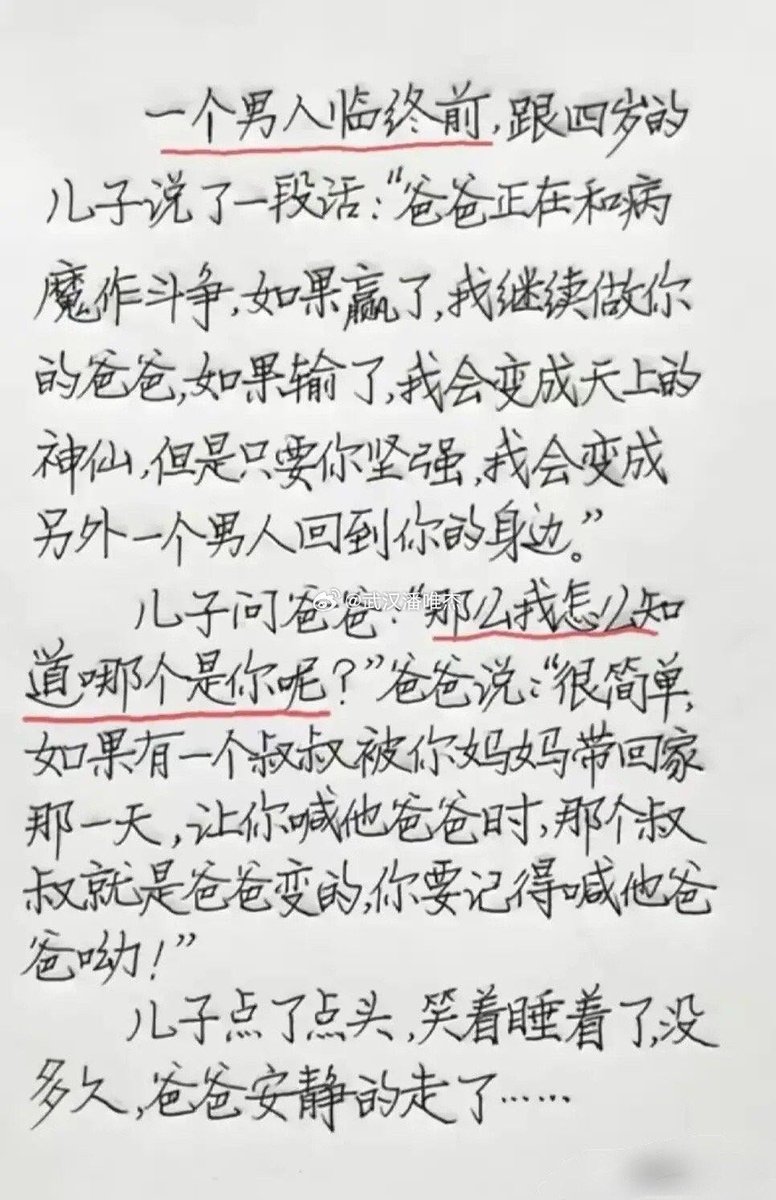 一个男人临终前,跟四岁的
儿子说了一段话:“爸爸正在和病
魔作斗争,如果赢了,我继续做你
的爸爸,如果输了,我会变成天上的
神仙,但是只要你坚强,我会变成
另外一个男人回到你的身边。”
儿子问爸爸:“那么我怎么知
@武汉潘唯杰
道哪个是你呢?”爸爸说:“很简单,
如果有一个叔叔被你妈妈带回家
那一天,让你喊他爸爸时,那个叔
叔就是爸爸变的,你要记得喊他爸
爸呦!”
儿子点了点头,笑着睡着了,没
多久,爸爸安静的走了……